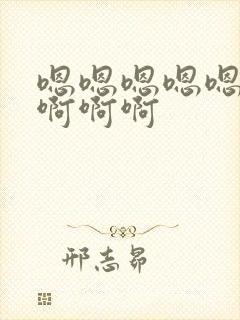 嗯嗯嗯嗯嗯
啊啊啊
邢志昴